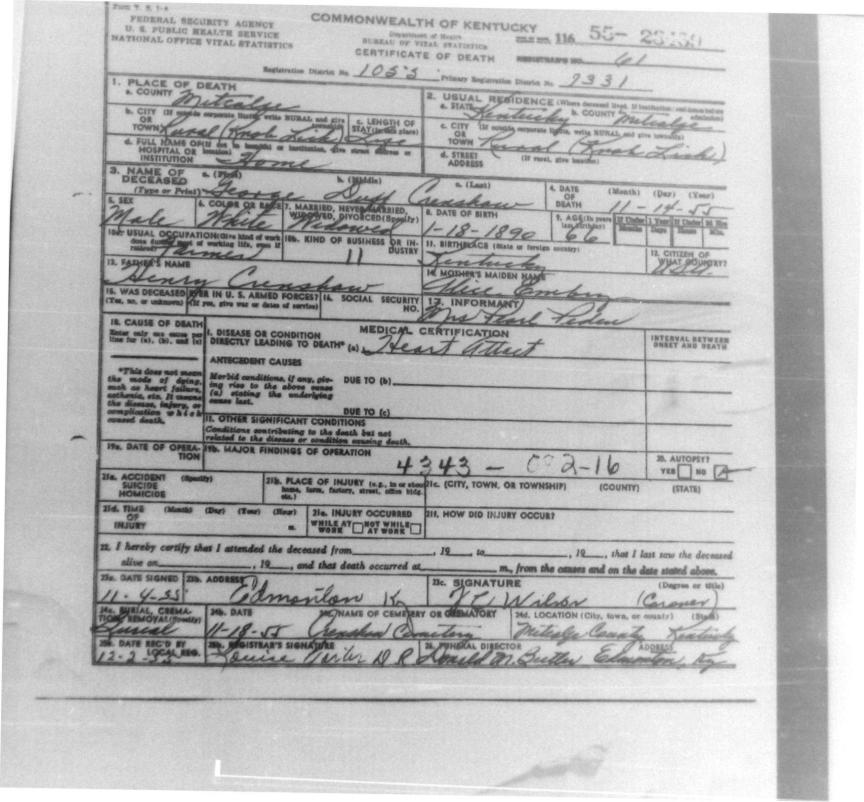 Form V. S. 1-A
FEDERAL SECURITY AGENCY
U. S. PUBLIC HEALTH SERVICE
NATIONAL OFFICE VITAL STATISTICS
COMMONWEALTH OF KENTUCKY
Department of Health
BUREAU OF VITAL STATISTICS
CERTIFICATE OF DEATH
116 55-
REGISTRAR'S NO. 61
Registration District No. 1055 Primary Registration District No. 7331
1. PLACE OF DEATH
a. COUNTY Metcalfe
b. CITY (If outside corporate limits, write RURAL and give
OR
TOWN Rural (Knob Lick)
c. LENGTH OF
STAY (in this place)
Life
d. FULL NAME OF (If not in hospital or institution, give street address or
HOSPITAL OR location)
INSTITUTION Home
2. USUAL RESIDENCE (Where deceased lived. If institution: residence before
admission)
a. STATE Kentucky b. COUNTY Metcalfe
c. CITY (If outside corporate limits, write RURAL and give township)
OR
TOWN Rural (Knob Lick)
d. STREET (If rural, give location)
ADDRESS
3. NAME OF a. (First) b. (Middle) c. (Last)
DECEASED
(Type or Print) George Duff Crenshaw
4. DATE (Month) (Day) (Year)
OF
DEATH 11-14-55
5. SEX
Male
6. COLOR OR RACE
White
7. MARRIED, NEVER MARRIED,
WIDOWED, DIVORCED (Specify)
Widowed
8. DATE OF BIRTH
1-18-1890
9. AGE (In years
last birthday)
66
If Under 1 Year If Under 24 Hrs.
Months Days Hours Min.
10a. USUAL OCCUPATION (Give kind of work
done during most of working life, even if
retired) Farmer
10b. KIND OF BUSINESS OR IN-
DUSTRY
11
11. BIRTHPLACE (State or foreign country)
Kentucky
12. CITIZEN OF
WHAT COUNTRY?
USA
13. FATHER'S NAME
Henry Crenshaw
14. MOTHER'S MAIDEN NAME
Alice Embry
15. WAS DECEASED EVER IN U. S. ARMED FORCES?
(Yes, no, or unknown) (If yes, give war or dates of service)
16. SOCIAL SECURITY
NO.
17. INFORMANT
Mrs Pearl Peden
18. CAUSE OF DEATH
Enter only one cause per
line for (a), (b), and (c)
*This does not mean
the mode of dying,
such as heart failure,
asthenia, etc. It means
the disease, injury, or
complication which
caused death.
MEDICAL CERTIFICATION
I. DISEASE OR CONDITION
DIRECTLY LEADING TO DEATH* (a) Heart Attect
INTERVAL BETWEEN
ONSET AND DEATH
ANTECEDENT CAUSES
Morbid conditions, if any, giv-
ing rise to the above cause
(a) stating the underlying
cause last.
DUE TO (b)
DUE TO (c)
II. OTHER SIGNIFICANT CONDITIONS
Conditions contributing to the death but not
related to the disease or condition causing death.
19a. DATE OF OPERA-
TION
19b. MAJOR FINDINGS OF OPERATION
4343 - 092-16
20. AUTOPSY?
YES NO
21a. ACCIDENT (Specify)
SUICIDE
HOMICIDE
21b. PLACE OF INJURY (e.g., in or about
home, farm, factory, street, office bldg.
etc.)
21c. (CITY, TOWN, OR TOWNSHIP) (COUNTY) (STATE)
21d. TIME (Month) (Day) (Year) (Hour)
OF
INJURY m.
21e. INJURY OCCURRED
WHILE AT NOT WHILE
WORK AT WORK
21f. HOW DID INJURY OCCUR?
22. I hereby certify that I attended the deceased from , 19 , to , 19 , that I last saw the deceased
alive on , 19 , and that death occurred at m., from the causes and on the date stated above.
23a. DATE SIGNED
11-4-55
23b. ADDRESS
Edmonton Ky
23c. SIGNATURE (Degree or title)
Wilson (Coroner)
24a. BURIAL, CREMA-
TION, REMOVAL (Specify)
Burial
24b. DATE
11-18-55
24c. NAME OF CEMETERY OR CREMATORY
Crenshaw Cemetery
24d. LOCATION (City, town, or county) (State)
Metcalfe County Kentucky
25a. DATE REC'D BY
LOCAL REG.
12-2-55
25b. REGISTRAR'S SIGNATURE
Louise D R
26. FUNERAL DIRECTOR ADDRESS
Donald M. Butler Edmonton, Ky